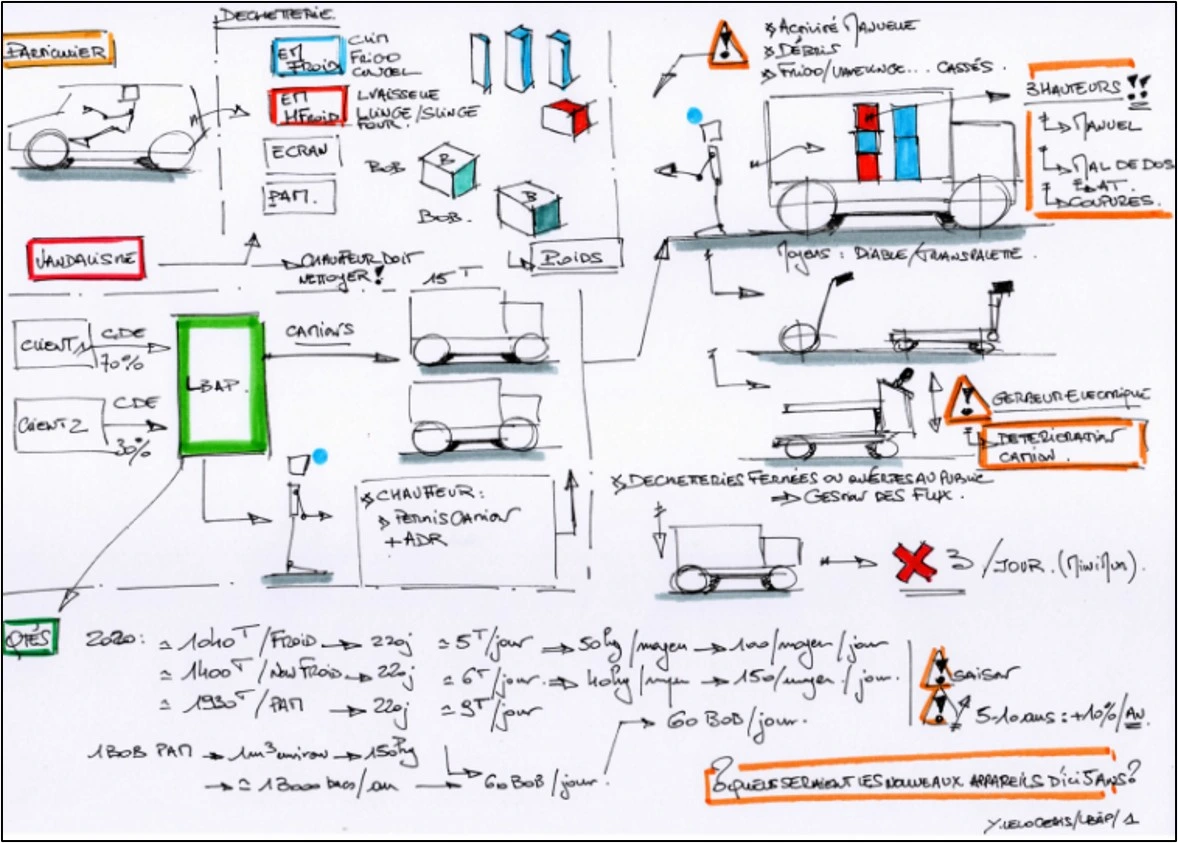 PARTICULIER
DECHETTERIE
EM
FROID
CLIM
FRIGO
CONGEL
EM
HFROID
LVAISSELLE
LLINGE/SLINGE
FOUR.
ECRAN
PAM.
BOB
B
BOB.
B
POIDS
VANDALISME
CHAUFFEUR DOIT
NETTOYER!
CLIENT 1
CDE
70%
CLIENT 2
CDE
30%
LBAP.
CAMIONS
15T
* CHAUFFEUR:
PERMIS CAMION
+ ADR
* ACTIVITÉ MANUELLE
* DÉBRIS
* FRIGO/ CASSÉS.
3 HAUTEURS !!
MANUEL
MAL DE DOS
COUPURES.
MOYENS : DIABLE/TRANSPALETTE.
GERBEUR ELECTRIQUE
DETERIORATION
CAMION.
* DECHETTERIES FERMÉES OU OUVERTES AU PUBLIC
⇒ GESTION DES FLUX.
3 /JOUR. (MINIMUM).
QTÉS
2020: ≃ 1040T/FROID → 220j ≃ 5T/jour ⇒ 50kg/moyen → 100/moyen/jour
≃ 1400T/NON FROID → 220j ≃ 6T/jour. ⇒ 40kg/moyen → 150/moyen/jour.
≃ 1930T/PAM → 220j ≃ 9T/jour
→ 60 BOB/jour.
1 BOB PAM → 1m³ environ → 150kg
→ ≃ 13000 bacs/an → 60 BOB/jour.
SAISON
5-10 ans : +10%/AN.
QUELS SERAIENT LES NOUVEAUX APPAREILS D'ICI 5 ANS?
/LBAP/1